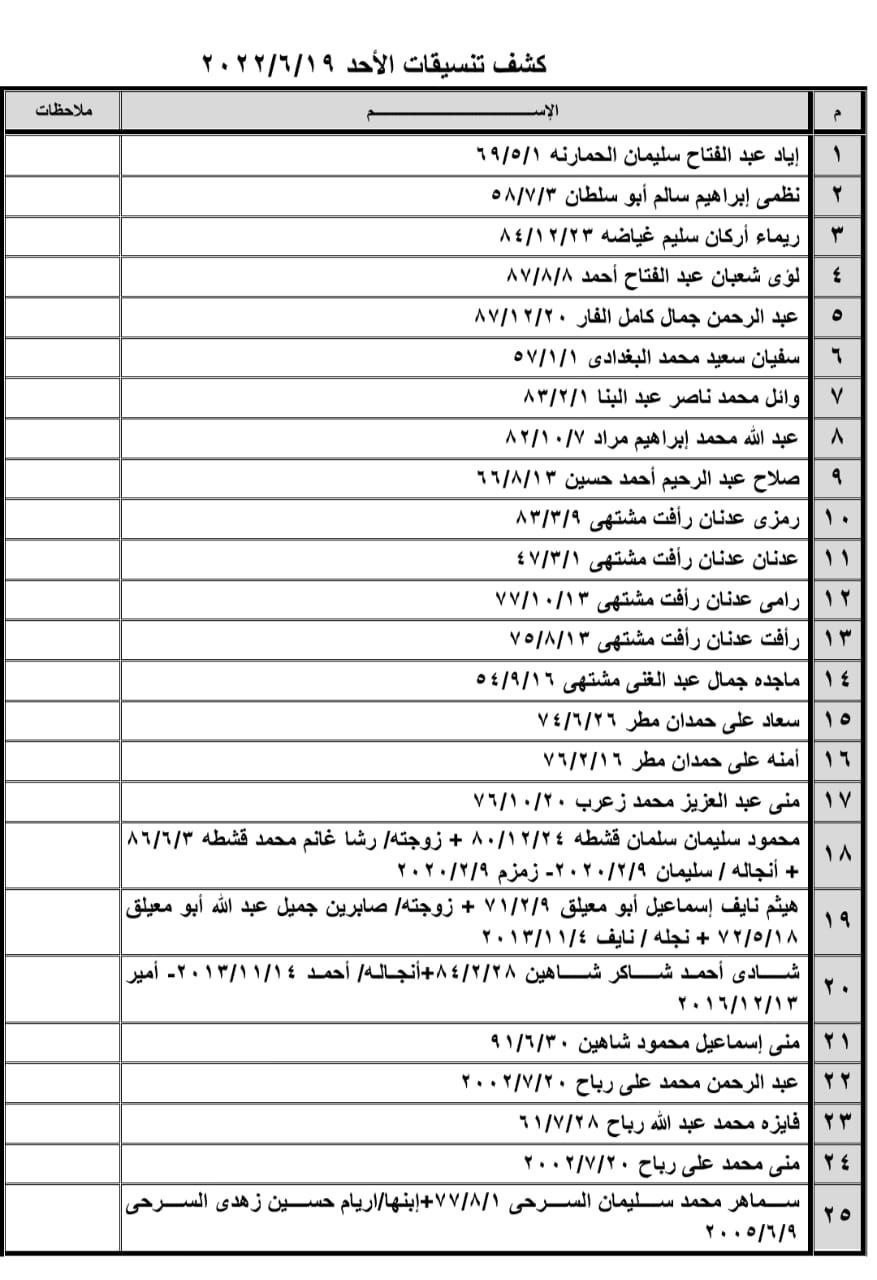 كشف تنسيقات الأحد ٢٠٢٢/٦/١٩
م الإســـــم ملاحظات
١ إياد عبد الفتاح سليمان الحمارنه ٦٩/٥/١
٢ نظمى إبراهيم سالم أبو سلطان ٥٨/٧/٣
٣ ريماء أركان سليم غياضه ٨٤/١٢/٢٣
٤ لؤى شعبان عبد الفتاح أحمد ٨٧/٨/٨
٥ عبد الرحمن جمال كامل الفار ٨٧/١٢/٢٠
٦ سفيان سعيد محمد البغدادى ٥٧/١/١
٧ وائل محمد ناصر عبد البنا ٨٣/٢/١
٨ عبد الله محمد إبراهيم مراد ٨٢/١٠/٧
٩ صلاح عبد الرحيم أحمد حسين ٦٦/٨/١٣
١٠ رمزى عدنان رأفت مشتهى ٨٣/٣/٩
١١ عدنان عدنان رأفت مشتهى ٤٧/٣/١
١٢ رامى عدنان رأفت مشتهى ٧٧/١٠/١٣
١٣ رأفت عدنان رأفت مشتهى ٧٥/٨/١٣
١٤ ماجده جمال عبد الغنى مشتهى ٥٤/٩/١٦
١٥ سعاد على حمدان مطر ٧٤/٦/٢٦
١٦ أمنه على حمدان مطر ٧٦/٢/١٦
١٧ منى عبد العزيز محمد زعرب ٧٦/١٠/٢٠
١٨ محمود سليمان سلمان قشطه ٨٠/١٢/٢٤ + زوجته/ رشا غانم محمد قشطه ٨٦/٦/٣
+ أنجاله / سليمان ٢٠٢٠/٢/٩- زمزم ٢٠٢٠/٢/٩
١٩ هيثم نايف إسماعيل أبو معيلق ٧١/٢/٩ + زوجته/ صابرين جميل عبد الله أبو معيلق
٧٢/٥/١٨ + نجله / نايف ٢٠١٣/١١/٤
٢٠ شـــادى أحمـد شـــاكر شـــاهين ٨٤/٢/٢٨+أنجـالـه/ أحمـد ٢٠١٣/١١/١٤- أمير
٢٠١٦/١٢/١٣
٢١ منى إسماعيل محمود شاهين ٩١/٦/٣٠
٢٢ عبد الرحمن محمد على رباح ٢٠٠٢/٧/٢٠
٢٣ فايزه محمد عبد الله رباح ٦١/٧/٢٨
٢٤ منى محمد على رباح ٢٠٠٢/٧/٢٠
٢٥ ســـماهر محمد ســـليمان الســـرحى ٧٧/٨/١+إبنها/اريام حســـين زهدى الســـرحى
٢٠٠٥/٦/٩